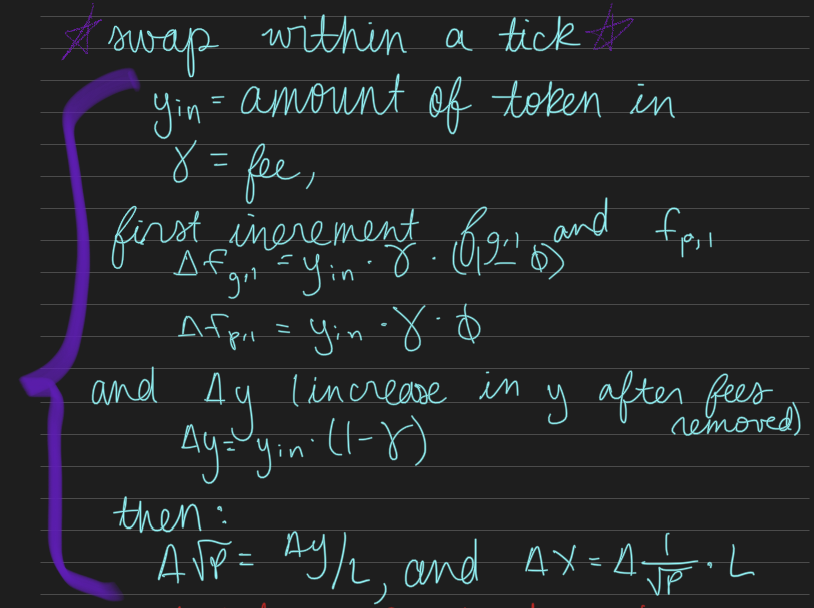 ☆ swap within a tick ☆
y_in = amount of token in
γ = fee,
first increment f_g,1 and f_p,1
Δf_g,1 = y_in · γ · (1 - φ)
Δf_p,1 = y_in · γ · φ
and Δy (increase in y after fees removed)
Δy = y_in · (1 - γ)
then:
Δ√P = Δy/L, and ΔX = Δ 1/√P · L